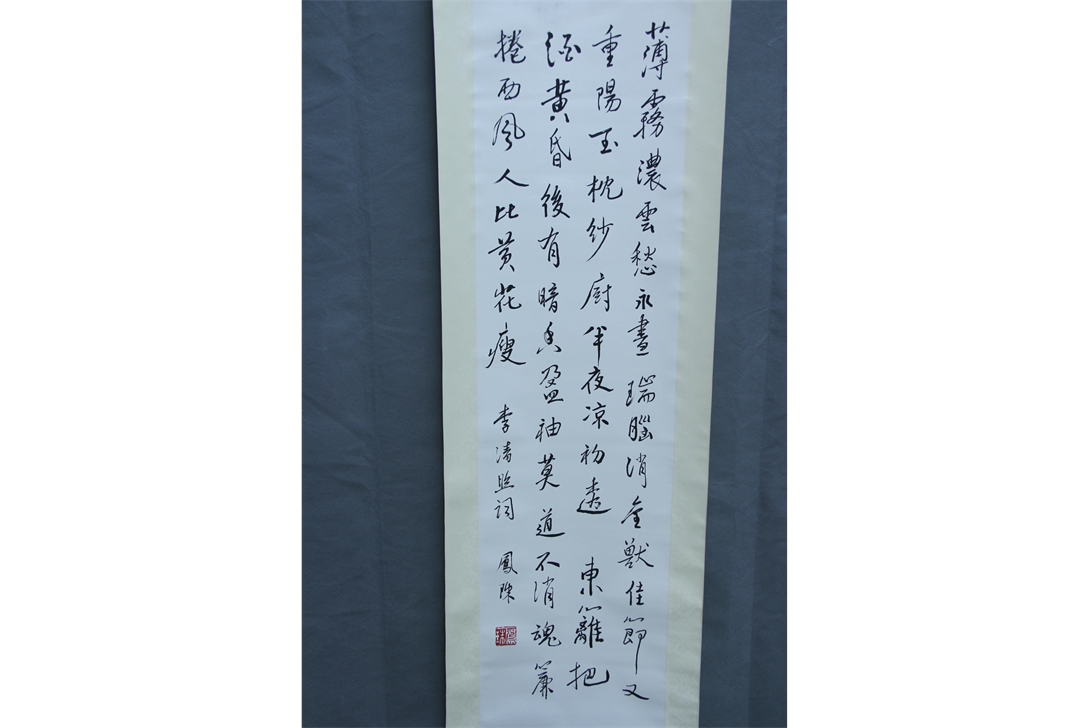 薄霧濃雲愁永晝瑞腦消金獸佳節又
重陽玉枕紗廚半夜涼初透東籬把
酒黃昏後有暗香盈袖莫道不消魂簾
捲西風人比黃花瘦
李清照詞
鳳珠